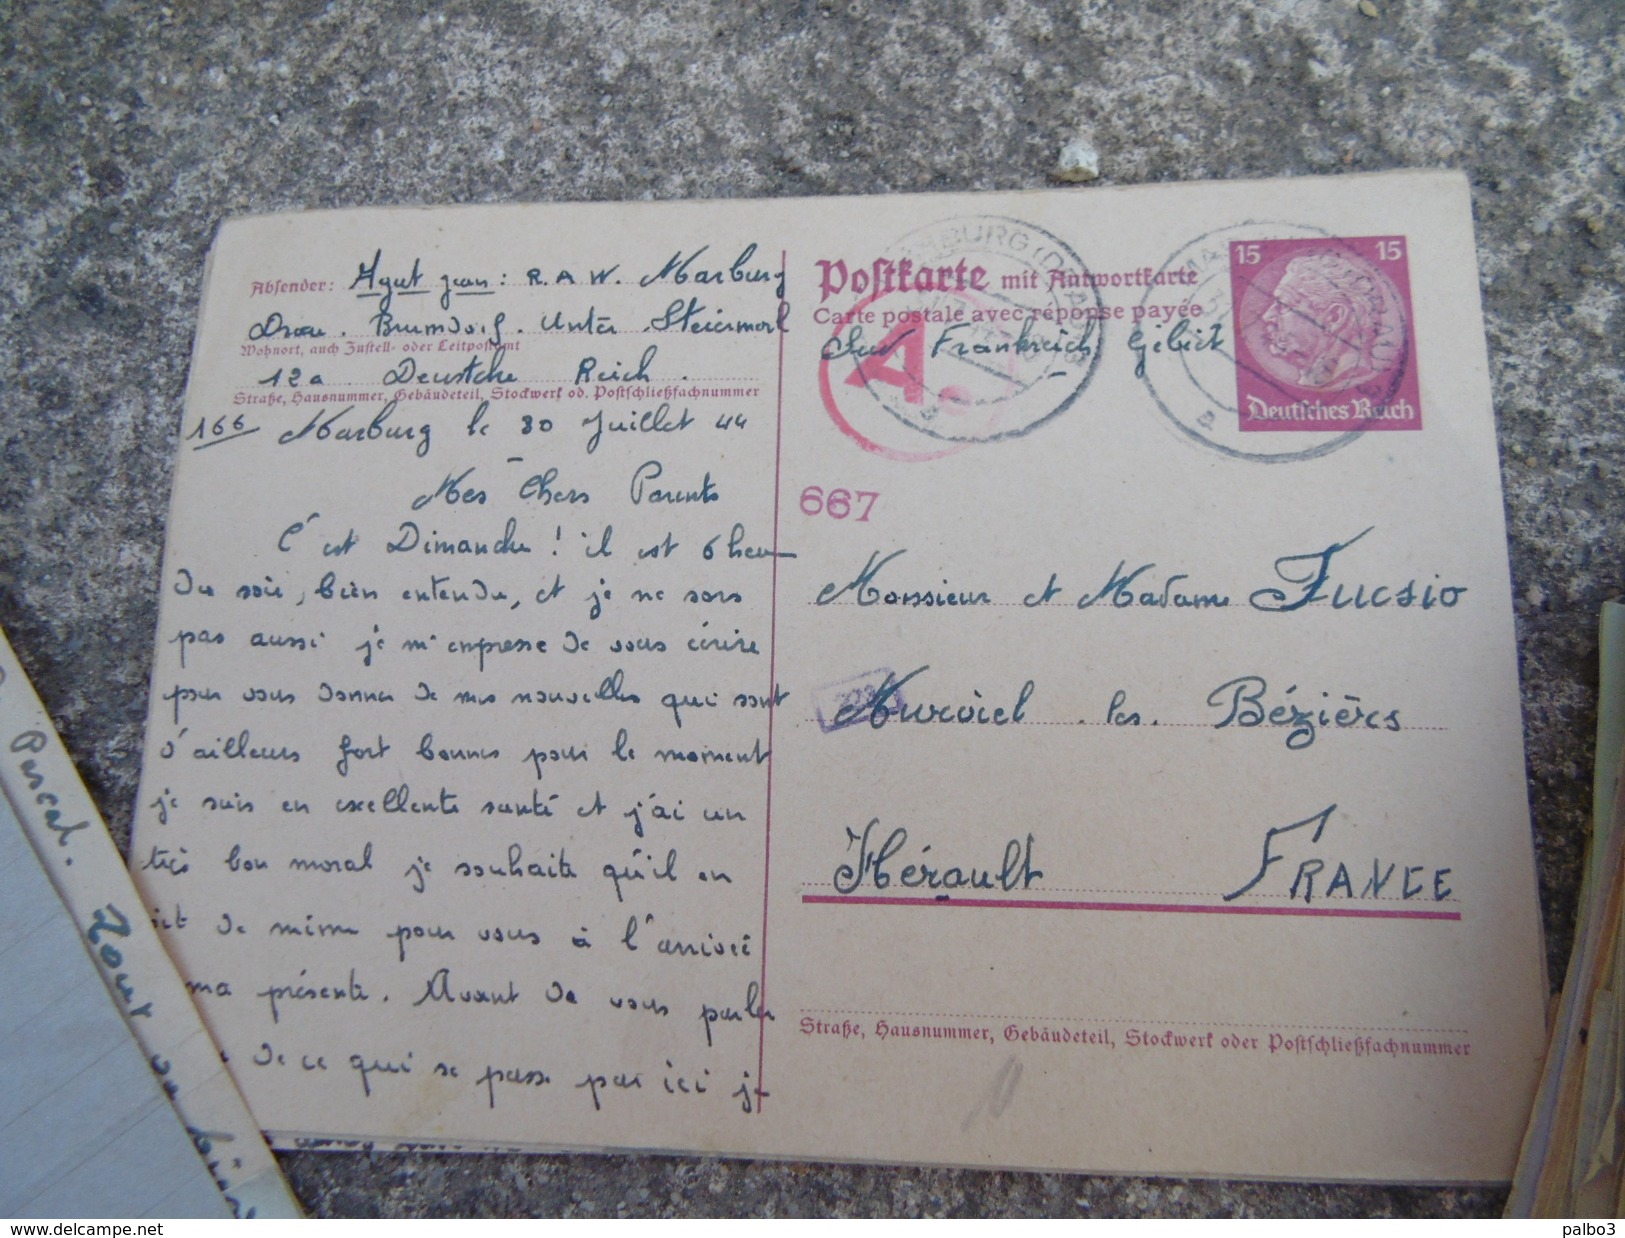 Absender: Agut Jean : R. A. W. Marburg
Drau. Brumdorf. Unter. Steiermork
Wohnort, auch Zustell- oder Leitpostamt
12a Deustche Reich.
Straße, Hausnummer, Gebäudeteil, Stockwerk od. Postschließfachnummer
166 Marburg le 30 Juillet 44
Mes Chers Parents
C'est Dimanche ! il est 6 heu
du soir, bien entendu, et je ne sors
pas aussi je m'empresse de vous écrire
pour vous donner de mes nouvelles qui sont
d'ailleurs fort bonnes pour le moment
je suis en excellente santé et j'ai un
très bon moral je souhaite qu'il en
soit de même pour vous à l'arrivée
ma présente. Avant de vous parler
de ce qui se passe par ici je
Postkarte mit Antwortkarte
Carte postale avec réponse payée
Frankreich Gebiet
A.
15 15
Deutsches Reich
667
Monsieur et Madame Fucsio
Murviel . les . Béziers
Hérault FRANCE
Straße, Hausnummer, Gebäudeteil, Stockwerk oder Postschließfachnummer
Pascal.
Tout va bien
palbo3